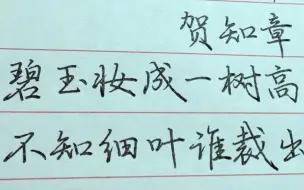 贺知章
碧玉妆成一树高
不知细叶谁裁出